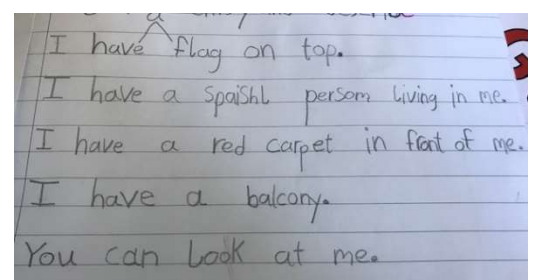 I have a flag on top.
I have a spaishl persom living in me.
I have a red carpet in front of me.
I have a balcony.
You can look at me.